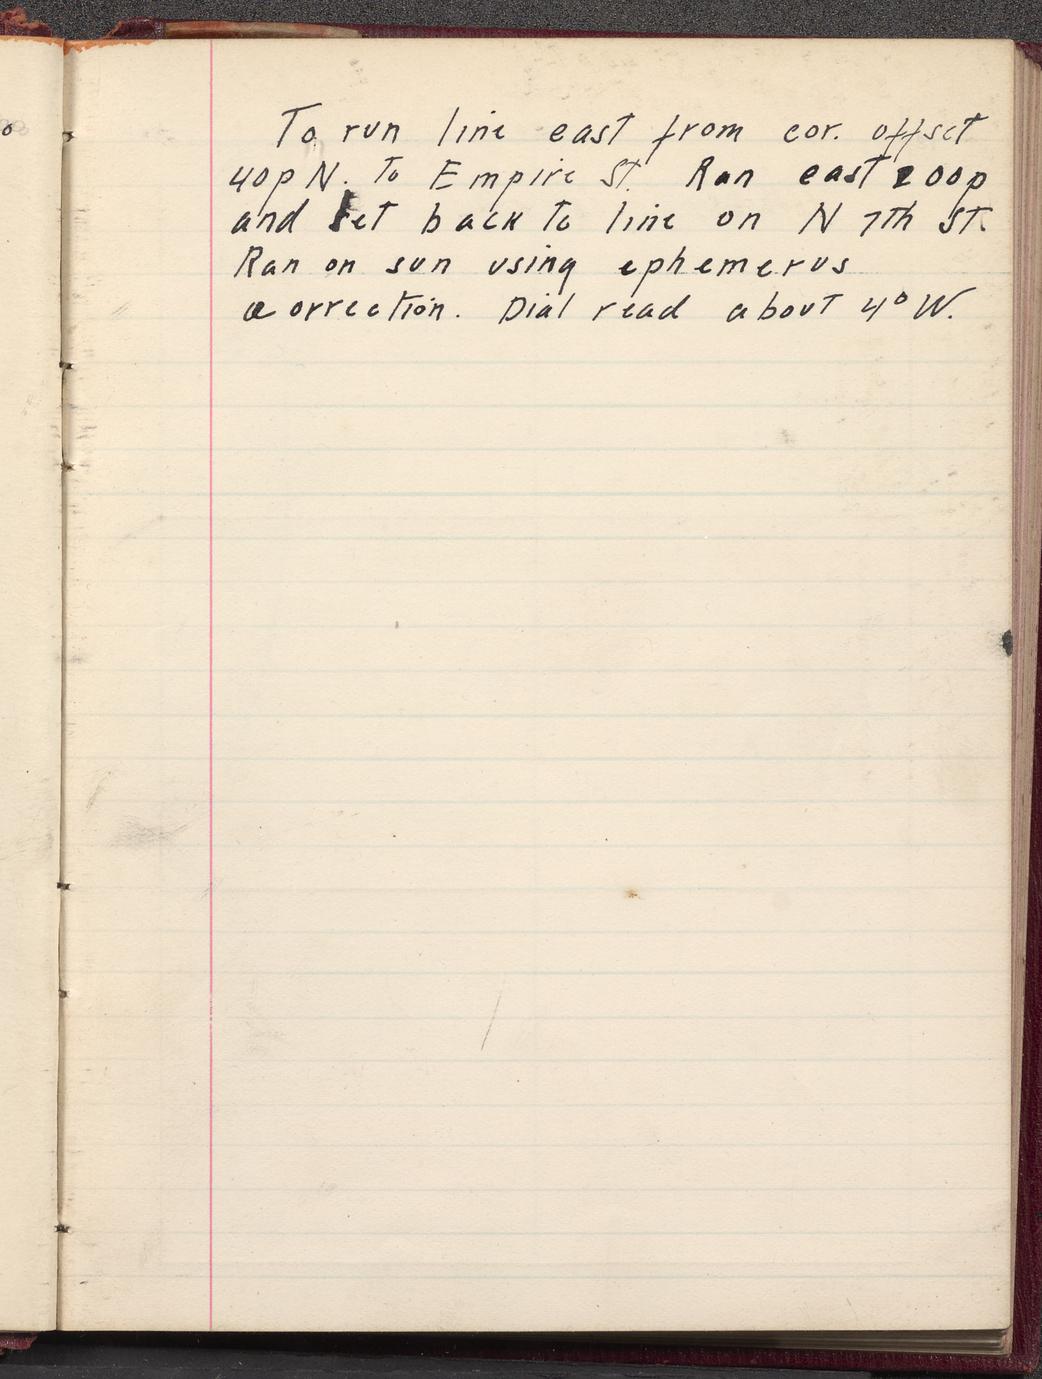 To run line east from cor. offset
40p N. To Empire St. Ran east 200p
and set back to line on N 7th St.
Ran on sun using ephemerus
correction. Dial read about 4° W.